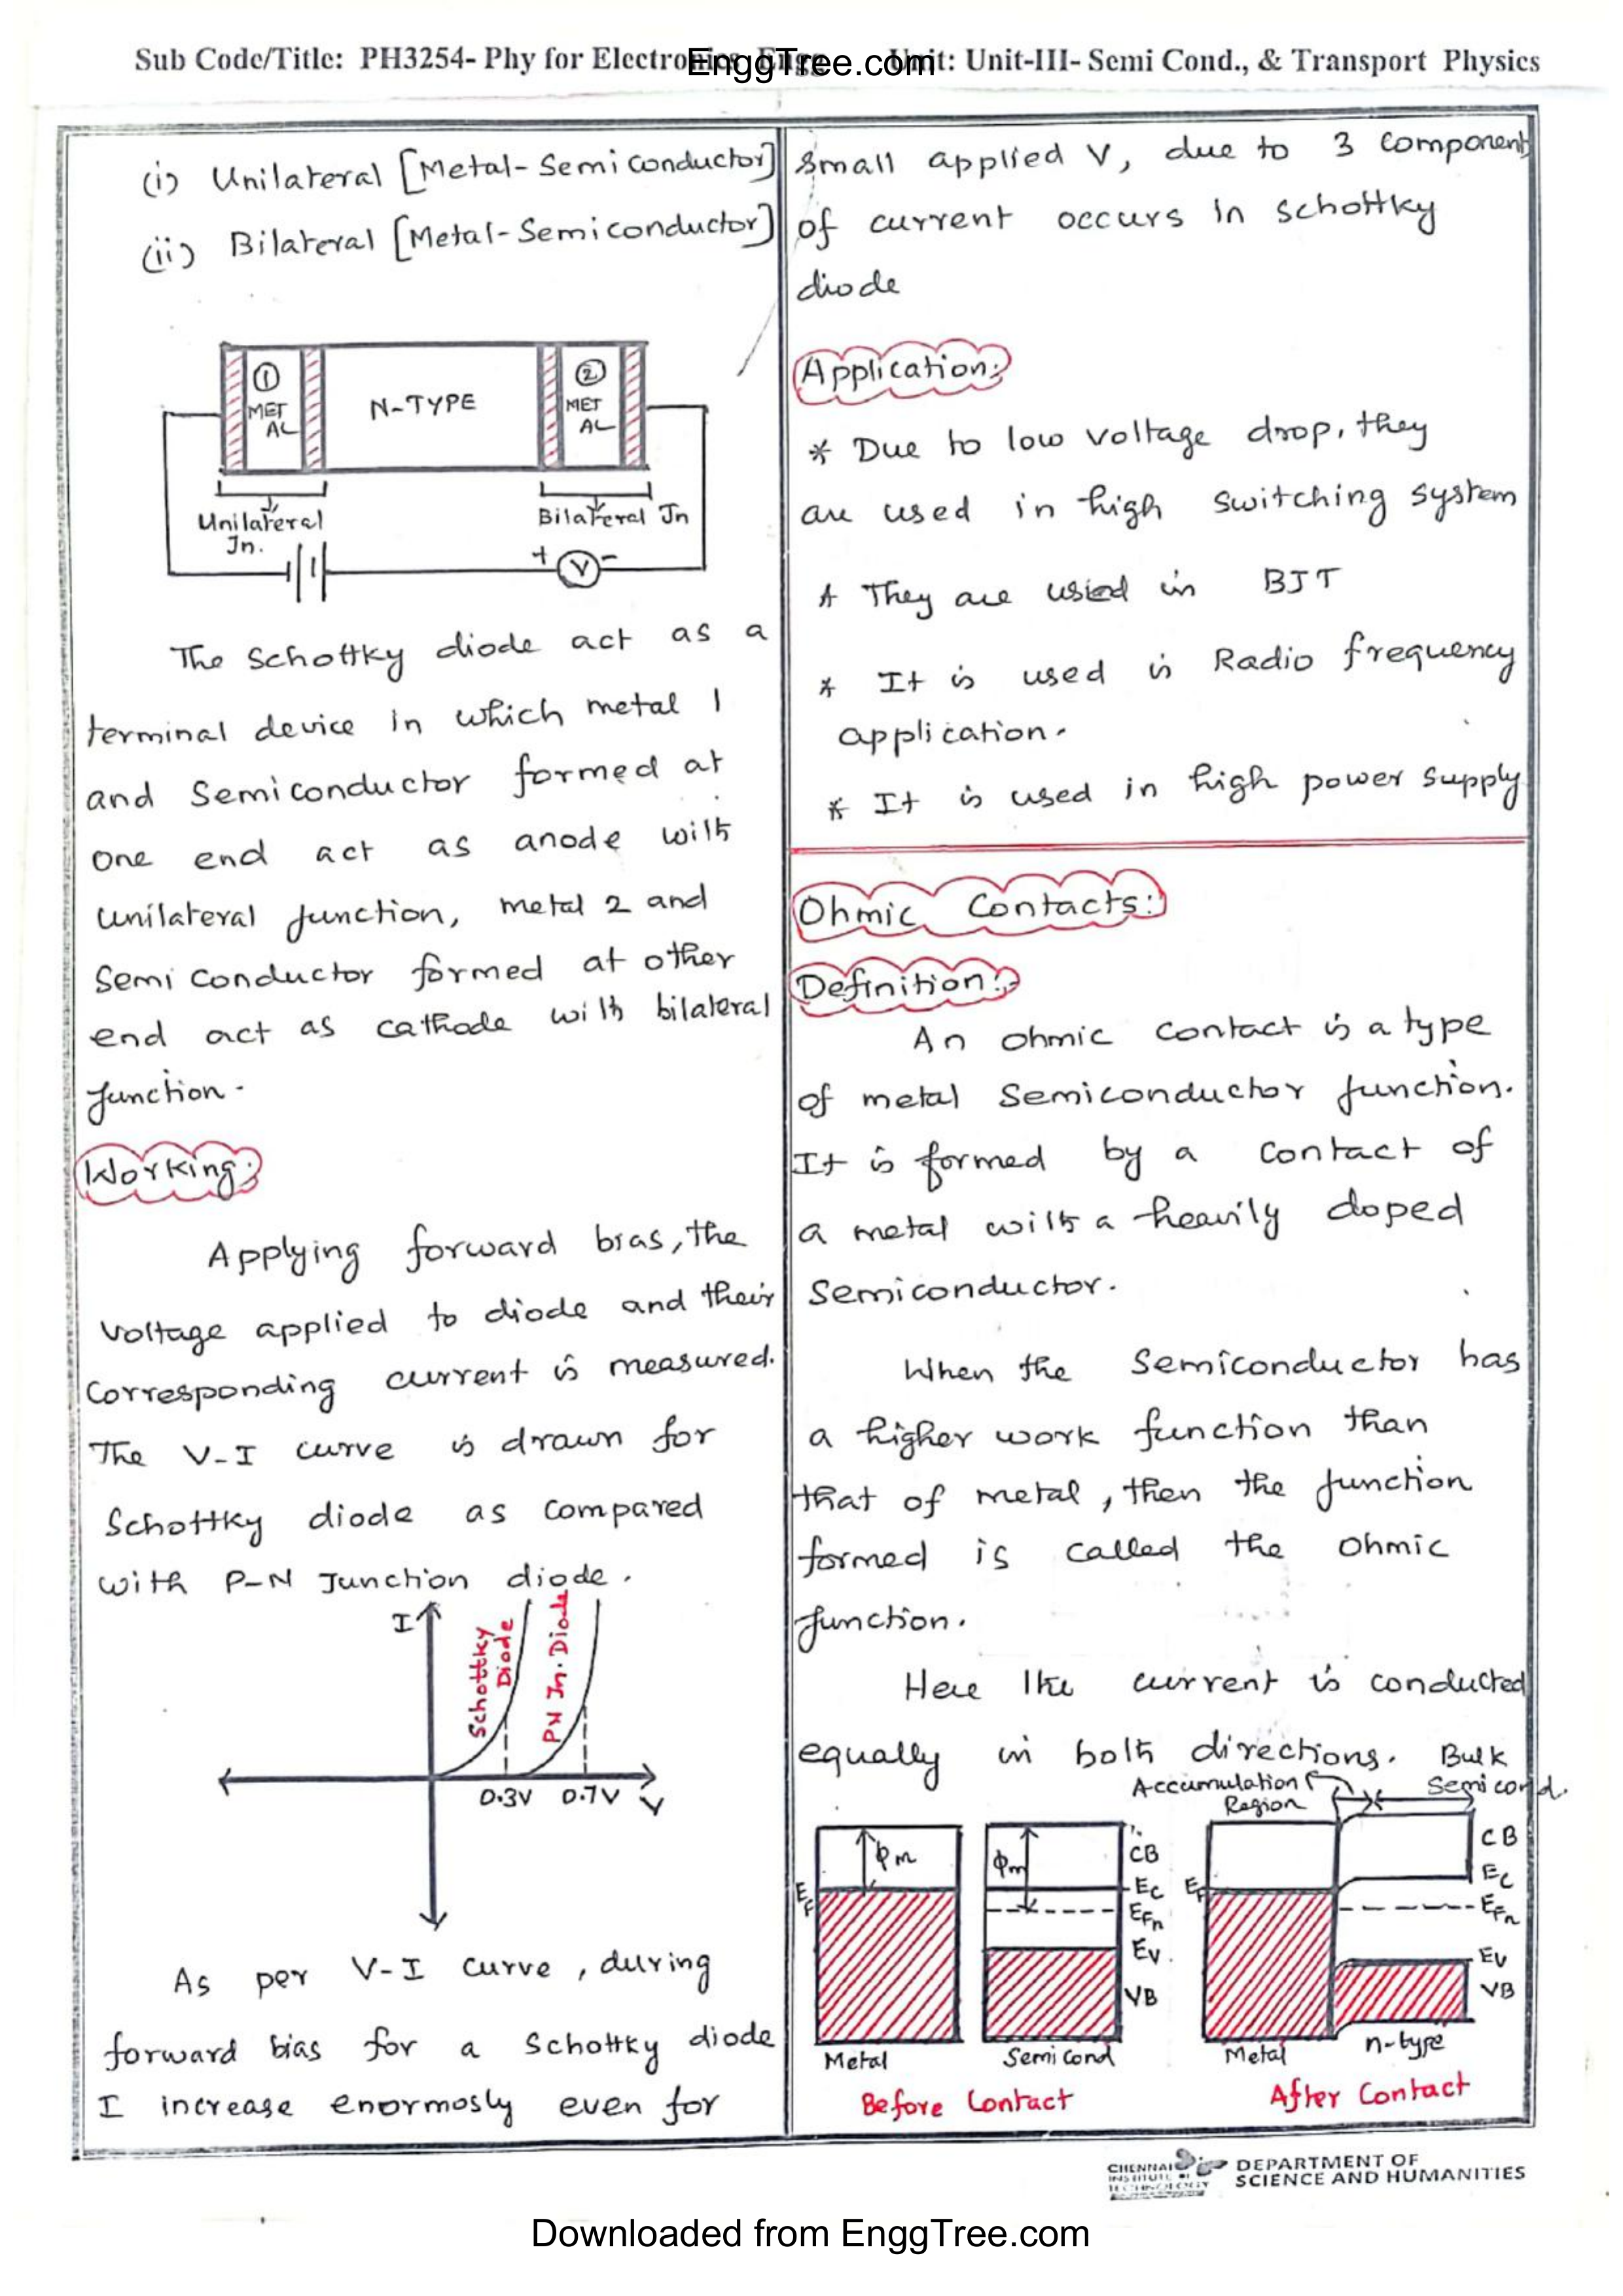 Sub Code/Title: PH3254- Phy for Electronics Engg Unit: Unit-III- Semi Cond., & Transport Physics
EnggTree.com
(i) Unilateral [Metal-Semiconductor]
(ii) Bilateral [Metal-Semiconductor]
① MET AL
N-TYPE
② MET AL
Unilateral Jn.
Bilateral Jn
+ V -
The Schottky diode act as a
terminal device in which metal 1
and Semiconductor formed at
one end act as anode with
unilateral junction, metal 2 and
Semi conductor formed at other
end act as cathode with bilateral
junction.
Working:
Applying forward bias, the
voltage applied to diode and their
corresponding current is measured.
The V-I curve is drawn for
Schottky diode as compared
with P-N Junction diode.
I
Schottky Diode
PN Jn. Diode
0.3V 0.7V V
As per V-I curve, during
forward bias for a Schottky diode
I increase enormosly even for
small applied V, due to 3 component
of current occurs in schottky
diode
Application:
* Due to low voltage drop, they
are used in high switching system
* They are used in BJT
* It is used is Radio frequency
application.
* It is used in high power supply
Ohmic Contacts:
Definition:
An ohmic contact is a type
of metal Semiconductor junction.
It is formed by a contact of
a metal with a heavily doped
semiconductor.
When the Semiconductor has
a higher work function than
that of metal, then the junction
formed is called the ohmic
junction.
Here the current is conducted
equally in both directions. Bulk
Accumulation Semi cond.
Region
φm
EF
φm
CB
Ec
EFn
Ev.
VB
EF
CB
Ec
EFn
Ev
VB
Metal
Semi Cond
Metal
n-type
Before Contact
After Contact
CHENNAI
INSTITUTE OF
TECHNOLOGY
DEPARTMENT OF
SCIENCE AND HUMANITIES
Downloaded from EnggTree.com